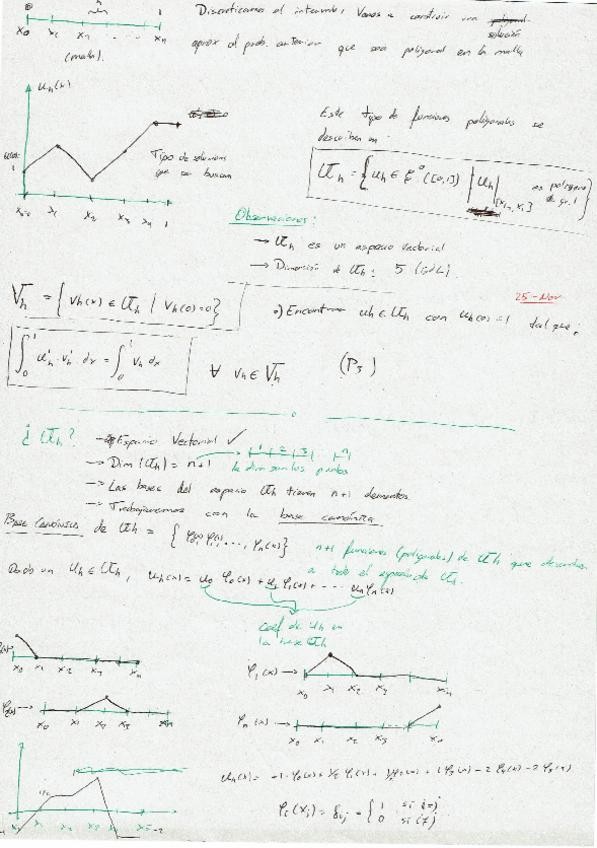 Discreticemos el intervalo. Vamos a construir una solución
aprox al prob. anterior que sea poligonal en la malla
0 1
x0 x1 ... xn
(malla).
uh(x)
Tipo de soluciones
que se buscan
x0=0 x1 x2 x3 x4 1
Este tipo de funciones poligonales se
describen en
Uh = { uh ∈ C⁰([0,1]) | uh|[xi-1, xi] es polígono de gr. 1 }
Observaciones:
→ Uh es un espacio vectorial
→ Dimensión de Uh: 5 (GdL).
25-Nov
Vh = { vh(x) ∈ Uh | vh(0)=0 }
Encontrar uh ∈ Uh con uh(0)=1 tal que:
∫₀¹ u'h · v'h dx = ∫₀¹ vh dx ∀ vh ∈ Vh (P3)
¿Uh? → Espacio Vectorial ✓
→ Dim(Uh) = n+1 la dim son los puntos
→ Las bases del espacio Uh tienen n+1 elementos
→ Trabajaremos con la base canónica
Base canónica de Uh = { φ0(x), φ1(x), ..., φn(x) }
n+1 funciones (poligonales) de Uh que describen
a todo el espacio de Uh.
Dado un uh ∈ Uh, uh(x) = u0 φ0(x) + u1 φ1(x) + ... un φn(x)
coef de uh en
la base Uh
x0 x1 x2 x3 xn
φ1(x) →
x0 x1 x2 x3 xn
x0 x1 x2 x3 xn
φn(x) →
x0 x1 x2 x3 xn
φi(xj) = δij = { 1 si i=j
0 si i≠j